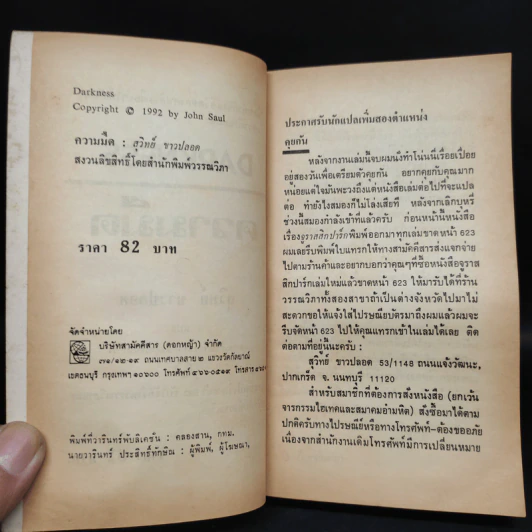 Darkness
Copyright © 1992 by John Saul
ความมืด : สุวิทย์ ขาวปลอด
สงวนลิขสิทธิ์โดยสำนักพิมพ์วรรณวิภา
ราคา 82 บาท
จัดจำหน่ายโดย
บริษัทสามัคคีสาร (ดอกหญ้า) จำกัด
๓๑/๑๒-๑๙ ถนนเทศบาลสาย ๒ แขวงวัดกัลยาณ์
เขตธนบุรี กรุงเทพฯ ๑๐๖๐๐ โทรศัพท์ ๔๖๖-๐๕๑๙ โทรสาร
พิมพ์ที่วารินทร์พับลิเคชั่น : คลองสาน, กทม.
นายวารินทร์ ประสิทธิ์ทักษิณ : ผู้พิมพ์, ผู้โฆษณา,
ประกาศรับนักแปลเพิ่มสองตำแหน่ง
คุยกัน
หลังจากงานเล่มนี้จบผมนึงทำโน่นนี่เรื่อยเปื่อย
อยู่สองวันเพื่อเตรียมตัวคุยกัน อยากคุยกับคุณมาก
หน่อยแต่ใจมันพะวงถึงแต่หนังสือเล่มต่อไปที่จะแปล
ต่อ ทำยังไงสมองก็ไม่โล่งเสียที หลังจากเลิกบุหรี่
ช่วงนี้สมองกำลังเข้าที่แล้วครับ ก่อนหน้านี้หนังสือ
เรื่องจูราสสิกปาร์กพิมพ์ออกมาทุกเล่มขาดหน้า 623
ผมเลยรีบพิมพ์ใบแทรกให้ทางสามัคคีสารส่งแจกจ่าย
ไปตามร้านค้าและอยากบอกว่าคุณๆที่ซื้อหนังสือจูราส
สิกปาร์กเล่มใหม่แล้วขาดหน้า 623 ให้มารับได้ที่ร้าน
วรรณวิภาทั้งสองสาขาถ้าเป็นต่างจังหวัดไปมาไม่
สะดวกขอให้แจ้งใส่ไปรษณียบัตรมาถึงผมแล้วผมจะ
รีบจัดหน้า 623 ไปให้คุณแทรกเข้าในเล่มได้เลย ติด
ต่อตามที่อยู่นี้นะครับ :
สุวิทย์ ขาวปลอด 53/1148 ถนนแจ้งวัฒนะ,
ปากเกร็ด จ.นนทบุรี 11120
สำหรับสมาชิกที่ต้องการสั่งหนังสือ (ยกเว้น
จารกรรมไฮเทคและสมาคมอำมหิต) สั่งซื้อมาได้ตาม
ปกติครับทางไปรษณีย์หรือทางโทรศัพท์-ต้องขออภัย
เนื่องจากสำนักงานเดิมโทรศัพท์มีการเปลี่ยนหมาย